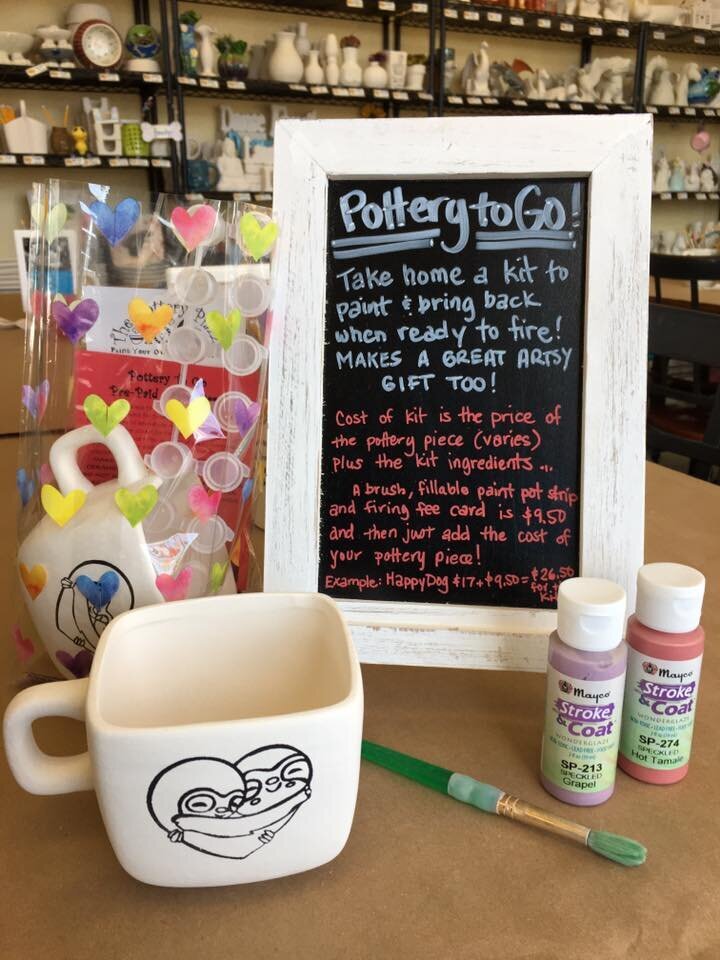 Pottery to Go!
Take home a kit to
paint & bring back
when ready to fire!
MAKES A GREAT ARTSY
GIFT TOO!
Cost of kit is the price of
the pottery piece (varies)
plus the kit ingredients ...
A brush, fillable paint pot strip
and firing fee card is $9.50
and then just add the cost of
your pottery piece!
Example: Happy Dog $17 + $9.50 = $26.50
for
kit
The Pottery
Paint Your
Pottery
Pre-Paid
Mayco
Stroke
& Coat
WONDERGLAZE
SP-213
SPECKLED
Grapel
Mayco
Stroke
& Coat
WONDERGLAZE
SP-274
SPECKLED
Hot Tamale